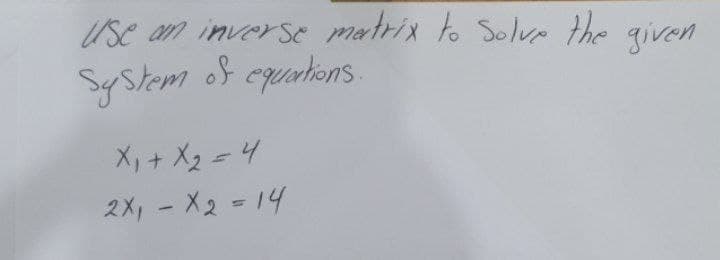 Use an inverse matrix to Solve the given
System of equations.
X₁ + X₂ = 4
2X₁ - X₂ = 14